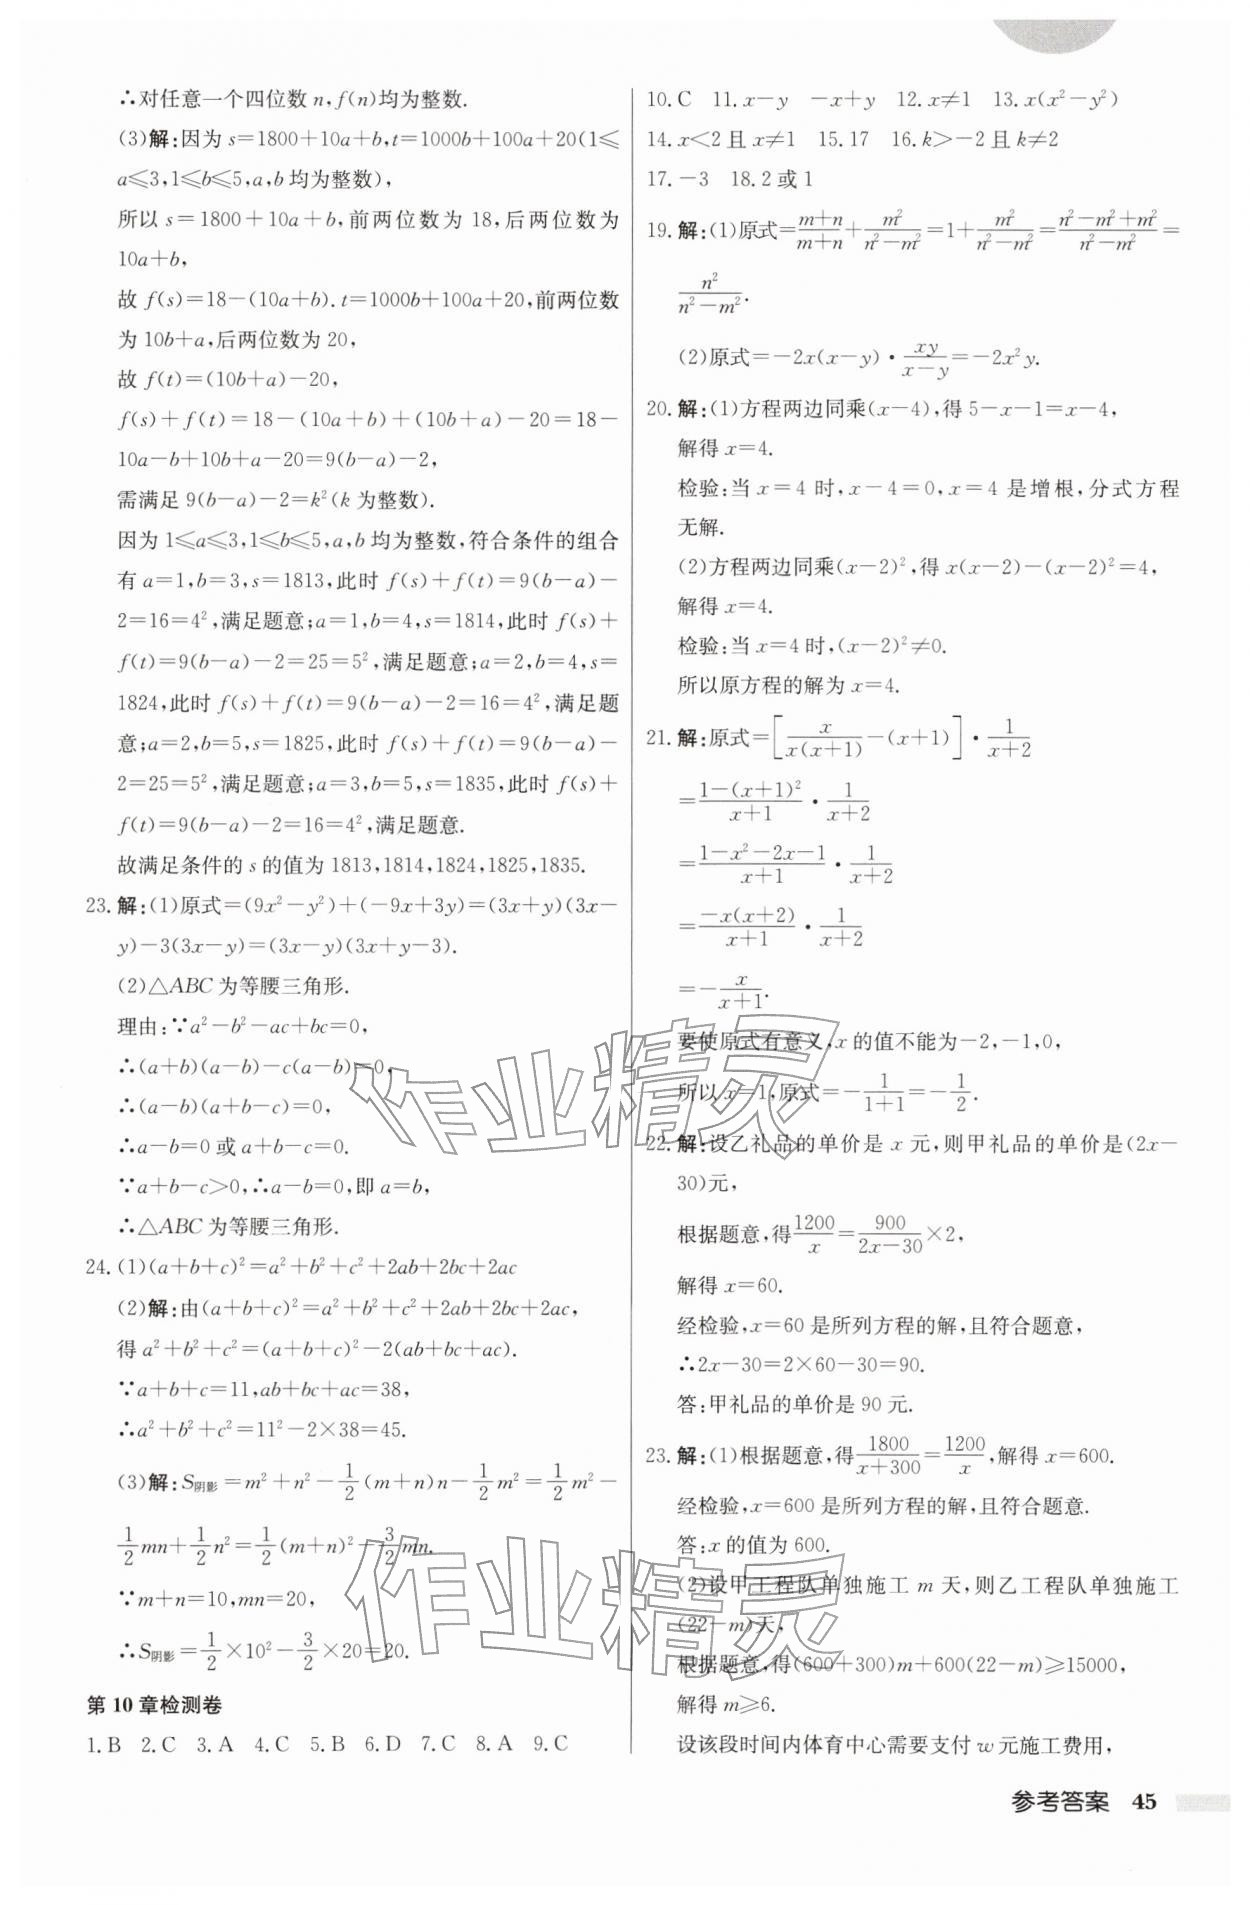 ∴对任意一个四位数 n,f(n)均为整数.
(3)解:因为 s=1800+10a+b,t=1000b+100a+20(1⩽
a⩽3,1⩽b⩽5,a,b 均为整数),
所以 s=1800+10a+b,前两位数为 18,后两位数为
10a+b,
故 f(s)=18-(10a+b).t=1000b+100a+20,前两位数
为 10b+a,后两位数为 20,
故 f(t)=(10b+a)-20,
f(s)+f(t)=18-(10a+b)+(10b+a)-20=18-
10a-b+10b+a-20=9(b-a)-2,
需满足 9(b-a)-2=k²(k 为整数).
因为 1⩽a⩽3,1⩽b⩽5,a,b 均为整数,符合条件的组合
有 a=1,b=3,s=1813,此时 f(s)+f(t)=9(b-a)-
2=16=4²,满足题意;a=1,b=4,s=1814,此时 f(s)+
f(t)=9(b-a)-2=25=5²,满足题意;a=2,b=4,s=
1824,此时 f(s)+f(t)=9(b-a)-2=16=4²,满足题
意;a=2,b=5,s=1825,此时 f(s)+f(t)=9(b-a)-
2=25=5²,满足题意;a=3,b=5,s=1835,此时 f(s)+
f(t)=9(b-a)-2=16=4²,满足题意.
故满足条件的 s 的值为 1813,1814,1824,1825,1835.
23.解:(1)原式=(9x²-y²)+(-9x+3y)=(3x+y)(3x-
y)-3(3x-y)=(3x-y)(3x+y-3).
(2)△ABC 为等腰三角形.
理由:∵a²-b²-ac+bc=0,
∴(a+b)(a-b)-c(a-b)=0,
∴(a-b)(a+b-c)=0,
∴a-b=0 或 a+b-c=0.
∵a+b-c>0,∴a-b=0,即 a=b,
∴△ABC 为等腰三角形.
24.(1)(a+b+c)²=a²+b²+c²+2ab+2bc+2ac
(2)解:由(a+b+c)²=a²+b²+c²+2ab+2bc+2ac,
得 a²+b²+c²=(a+b+c)²-2(ab+bc+ac).
∵a+b+c=11,ab+bc+ac=38,
∴a²+b²+c²=11²-2×38=45.
(3)解:S阴影=m²+n²-1/2(m+n)n-1/2m²=1/2m²-
1/2mn+1/2n²=1/2(m+n)²-3/2mn.
∵m+n=10,mn=20,
∴S阴影=1/2×10²-3/2×20=20.
第 10 章检测卷
1.B 2.C 3.A 4.C 5.B 6.D 7.C 8.A 9.C
10.C 11.x-y -x+y 12.x≠1 13.x(x²-y²)
14.x<2 且 x≠1 15.17 16.k>-2 且 k≠2
17.-3 18.2 或 1
19.解:(1)原式=(m+n)/(m+n)+m²/(n²-m²)=1+m²/(n²-m²)=(n²-m²+m²)/(n²-m²)=
n²/(n²-m²).
(2)原式=-2x(x-y)·xy/(x-y)=-2x²y.
20.解:(1)方程两边同乘(x-4),得 5-x-1=x-4,
解得 x=4.
检验:当 x=4 时,x-4=0,x=4 是增根,分式方程
无解.
(2)方程两边同乘(x-2)²,得 x(x-2)-(x-2)²=4,
解得 x=4.
检验:当 x=4 时,(x-2)²≠0.
所以原方程的解为 x=4.
21.解:原式=[x/(x(x+1))-(x+1)]·1/(x+2)
=(1-(x+1)²)/(x+1)·1/(x+2)
=(1-x²-2x-1)/(x+1)·1/(x+2)
=(-x(x+2))/(x+1)·1/(x+2)
=-x/(x+1).
要使原式有意义,x 的值不能为-2,-1,0,
所以 x=1,原式=-1/(1+1)=-1/2.
22.解:设乙礼品的单价是 x 元,则甲礼品的单价是(2x-
30)元,
根据题意,得1200/x=900/(2x-30)×2,
解得 x=60.
经检验,x=60 是所列方程的解,且符合题意,
∴2x-30=2×60-30=90.
答:甲礼品的单价是 90 元.
23.解:(1)根据题意,得1800/(x+300)=1200/x,解得 x=600.
经检验,x=600 是所列方程的解,且符合题意.
答:x 的值为 600.
(2)设甲工程队单独施工 m 天,则乙工程队单独施工
(22-m)天,
根据题意,得(600+300)m+600(22-m)⩾15000,
解得 m⩾6.
设该段时间内体育中心需要支付 w 元施工费用,
参考答案 45
作业精灵
作业精灵